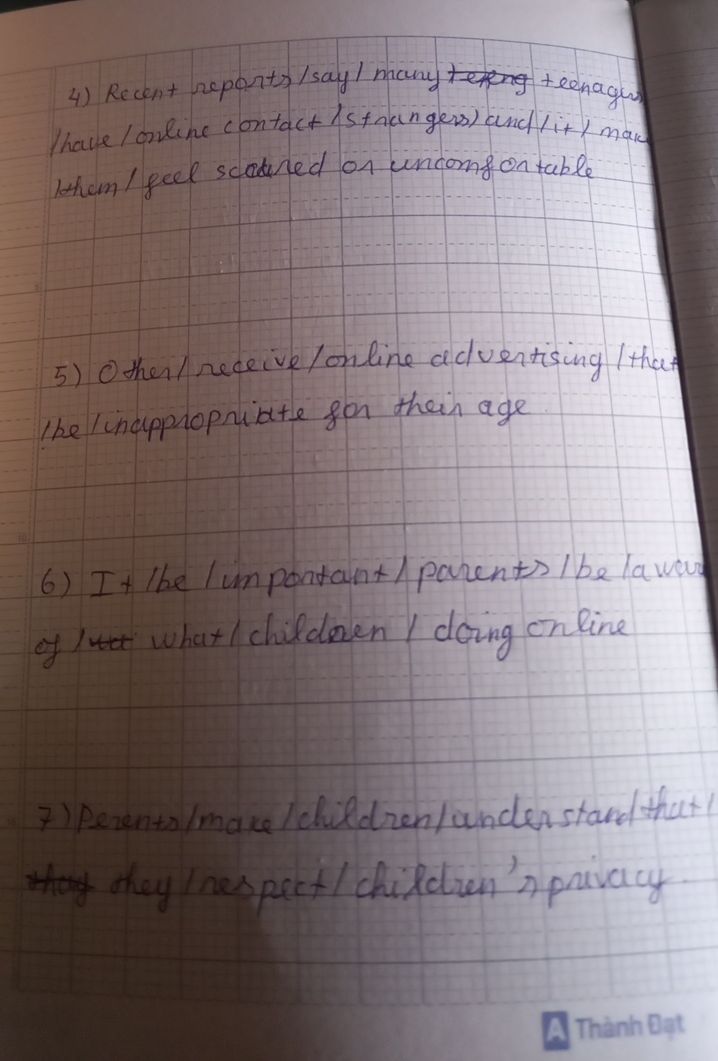 4) Recent reports/say/many tereng teenagers
/have/online contact/strangers) and/it/make
/them/feel scatured or uncomfortable
5) Other/receive/online advertising/that
/be/inappropriate for their age
6) It/be/important/parents/be/aware
of/ what/children/doing online
7) Perents/make/children/understand that/
they they/respect/children's privacy.
A Thành Đạt